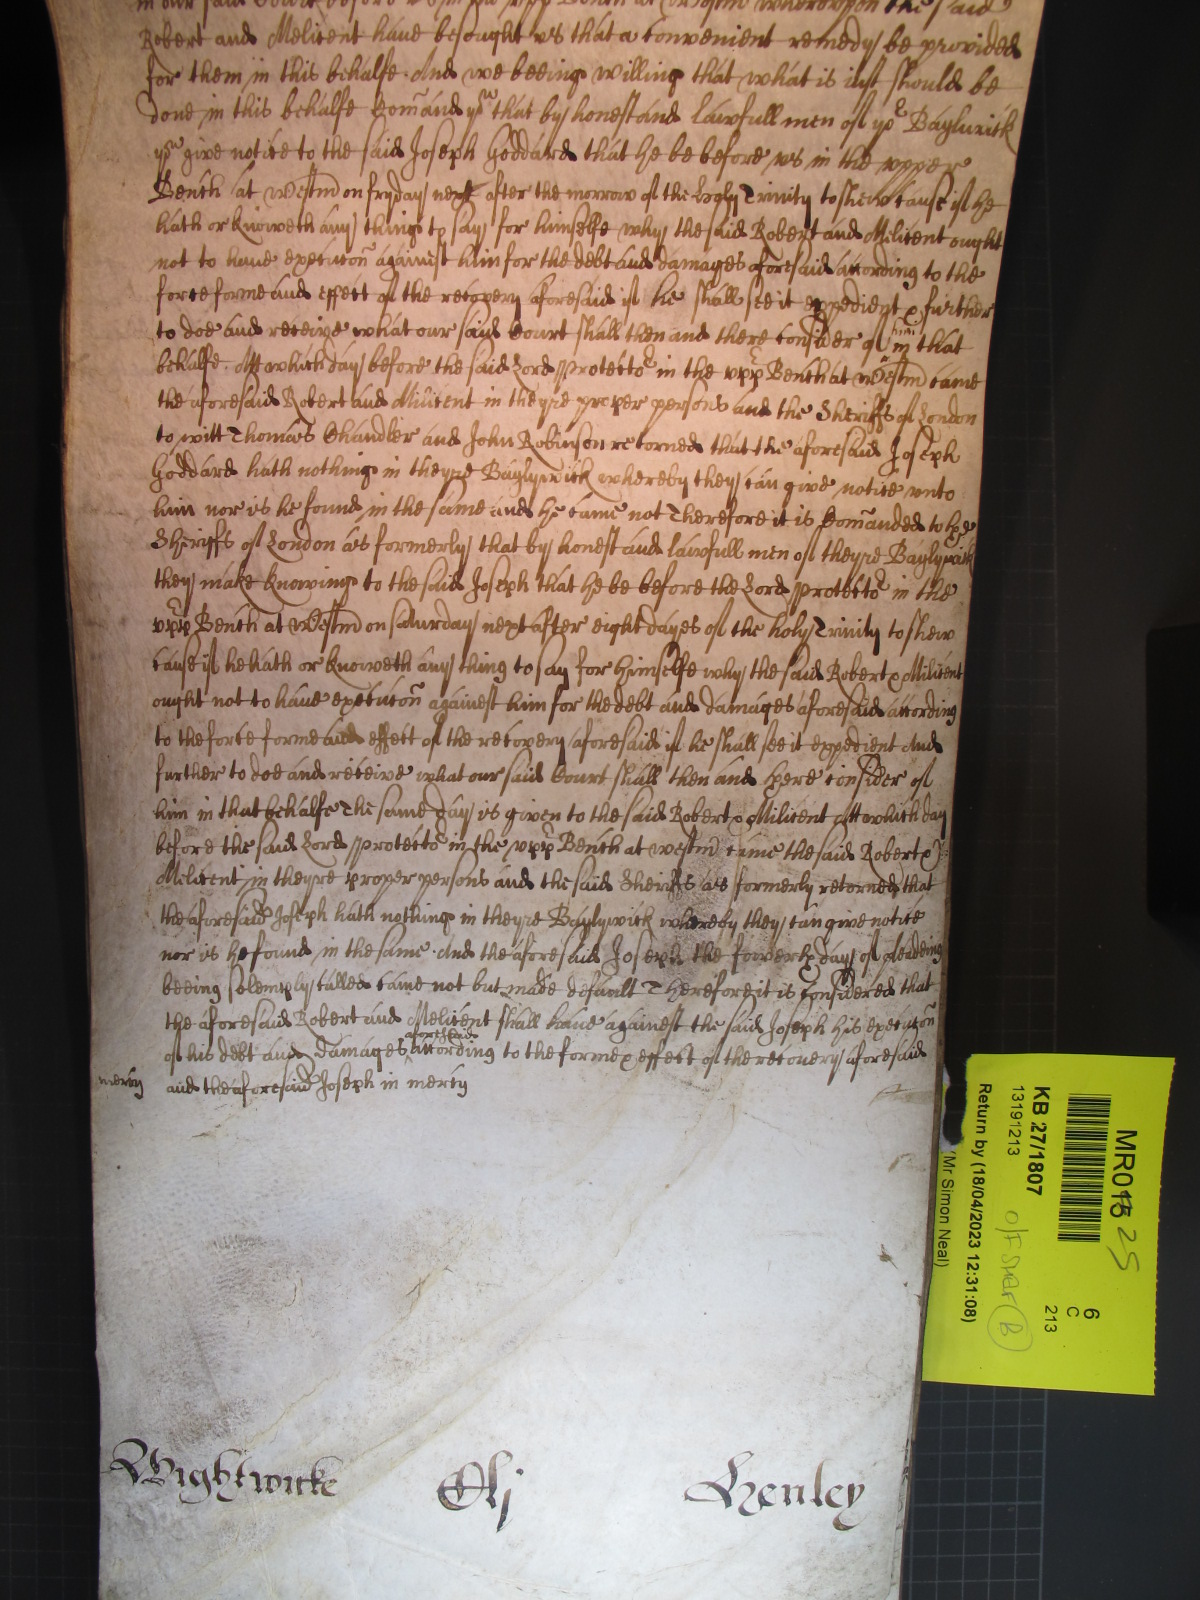 in our said Court before us in the upp Bench at Westm wherevppon the said
Robert and Melicent haue besought vs that a convenient remedy be provided
for them in this behalfe. And we beeing willing that what is iust should be
done in this behalfe Com̃and yᵒᵘ that by honest and lawfull men of yoʳ Baylwick
yᵒᵘ give notice to the said Joseph Goddard that he be before vs in the vpper
Bench at Westm̃ on fryday next after the morrow of the holy Trinity to shew cause if he
hath or knoweth any thing to say for himselfe why the said Robert and Melicent ought
not to haue execucoñ against him for the debt and damages aforesaid according to the
force forme and effect of the recovery aforesaid if he shall see it expedient & further
to doe and receive what our said Court shall then and there consider of him in that
behalfe. Att which day before the said Lord Protectoʳ in the vppʳ Bench at Westm̃ came
the aforesaid Robert and Milicent in theyre proper persons and the Sheriffs of London
to witt Thomas Chandler and John Robinson retorned that the aforesaid Joseph
Goddard hath nothing in theyre Baylywick whereby they can give notice vnto
him nor is he found in the same and he came not Therefore it is Com̃anded to the
Sheriffs of London as formerly that by honest and lawfull men of theyre Baylywick
they make knowing to the said Joseph that he be before the Lord Protectoʳ in the
vppʳ Bench at Westm̃ on Saturday next after eight dayes of the holy Trinity to shew
cause if he hath or knoweth any thing to say for himselfe why the said Robert & Milicent
ought not to haue execucoñ against him for the debt and damages aforesaid according
to the force forme and effect of the recovery aforesaid if he shall see it expedient And
further to doe and receive what our said Court shall then and there consider of
him in that behalfe The same day is given to the said Robert & Milicent Att which day
before the said Lord Protectoʳ in the vppʳ Bench at westm̃ came the said Robert &
Melicent in theyre proper persons and the said Sheriffs as formerly retorned that
the aforesaid Joseph hath nothing in theyre Baylywick whereby they can give notice
nor is he found in the same. And the aforesaid Joseph the fowerth day of pleading
beeing solemply called came not but made default Therefore it is Considered that
the aforesaid Robert and Melicent shall haue against the said Joseph his execucoñ
of his debt and damages aforesaid according to the forme & effect of the recouery aforesaid
mercy and the aforesaid Joseph in mercy
Wightwicke Olj Henley
MR01 25
6
C
213
KB 27/1807
13191213
O/F Shelf B
Return by (18/04/2023 12:31:08)
(Mr Simon Neal)